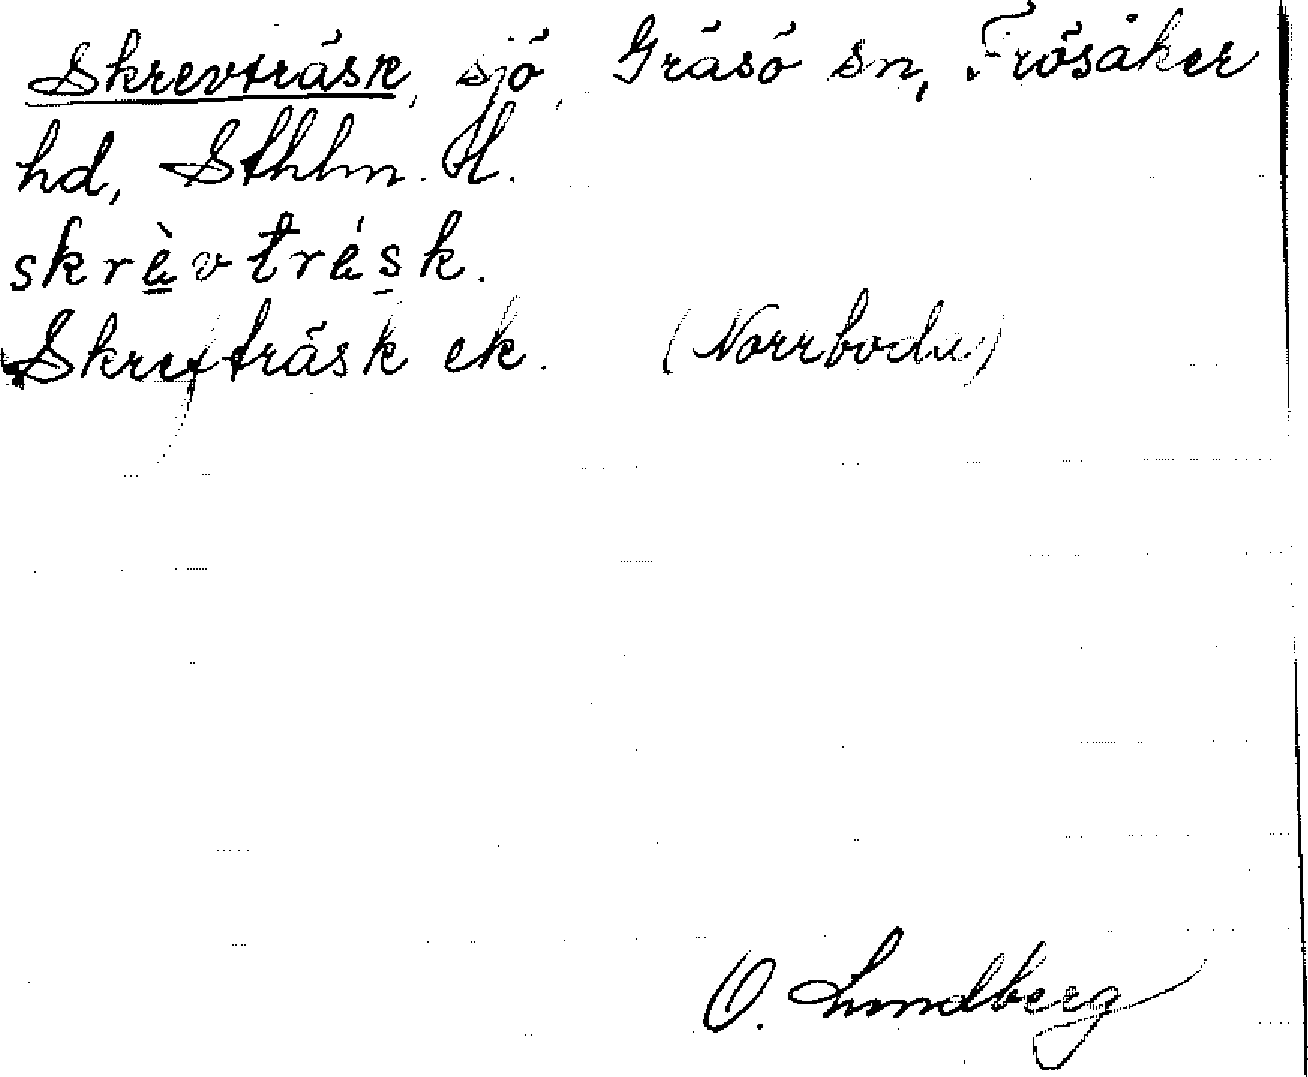 Skrevträsk, sjö, Gräsö sn, Frösåker
hd, Sthlm. l.
skrèvtrésk.
Skrefträsk ek. (Norrboda)
O. Lundberg